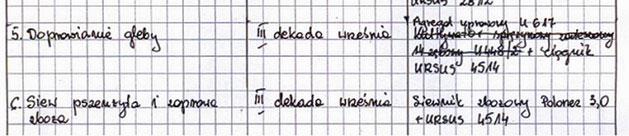 URSUS 2812
5. Doprawianie gleby III dekada września Agregat uprawowy U 617
Kultywator sprężynowy
U 448/2 + ciągnik
URSUS 4514
6. Siew pszenżyta i zaprawa III dekada września Siewnik zbożowy Polonez 3,0
zboża + URSUS 4514